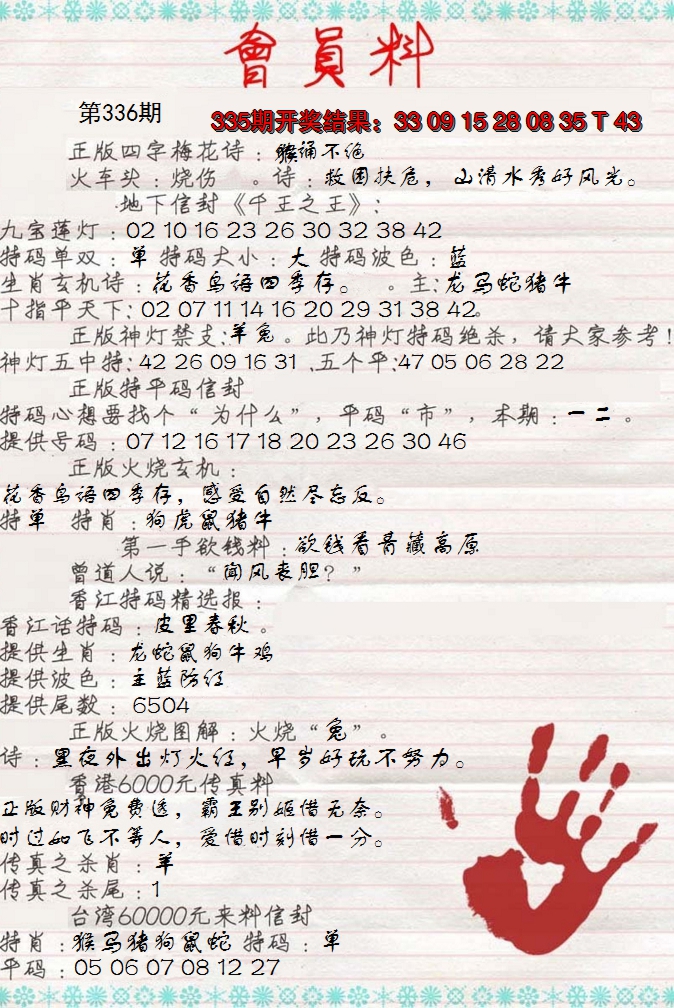 會員料
第336期
335期开奖结果：33 09 15 28 08 35 T 43
正版四字梅花诗：猴诵不绝
火车头：烧伤 。诗：救困扶危，山清水秀好风光。
地下信封《千王之王》：
九宝莲灯：02 10 16 23 26 30 32 38 42
特码单双：单 特码大小：大 特码波色：蓝
生肖玄机诗：花香鸟语四季存。 。主：龙马蛇猪牛
十指平天下：02 07 11 14 16 20 29 31 38 42。
正版神灯禁支：羊兔。此乃神灯特码绝杀，请大家参考！
神灯五中特：42 26 09 16 31 .五个平：47 05 06 28 22
正版特平码信封
特码心想要找个“为什么”，平码“市”，本期：一二。
提供号码：07 12 16 17 18 20 23 26 30 46
正版火烧玄机：
花香鸟语四季存，感受自然尽忘反。
特单 特肖：狗虎鼠猪牛
第一手欲钱料：欲钱看青藏高原
曾道人说：“闻风丧胆？”
香江特码精选报：
香江话特码：皮里春秋。
提供生肖：龙蛇鼠狗牛鸡
提供波色：主蓝防红
提供尾数：6504
正版火烧图解：火烧“兔”。
诗：黑夜外出灯火红，早岁好玩不努力。
香港6000元传真料
正版财神免费送，霸王别姬借无奈。
时过如飞不等人，爱惜时刻借一分。
传真之杀肖：羊
传真之杀尾：1
台湾60000元来料信封
特肖：猴马猪狗鼠蛇 特码：单
平码：05 06 07 08 12 27